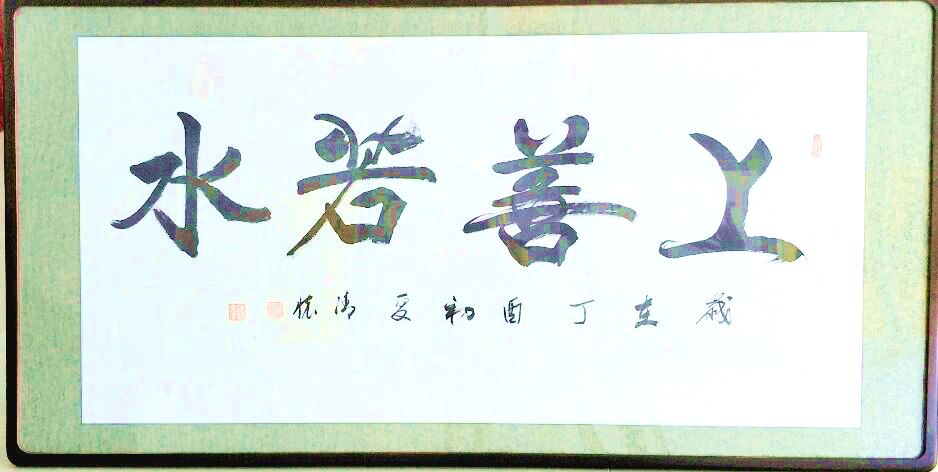 上善若水
歲在丁酉初夏清猿